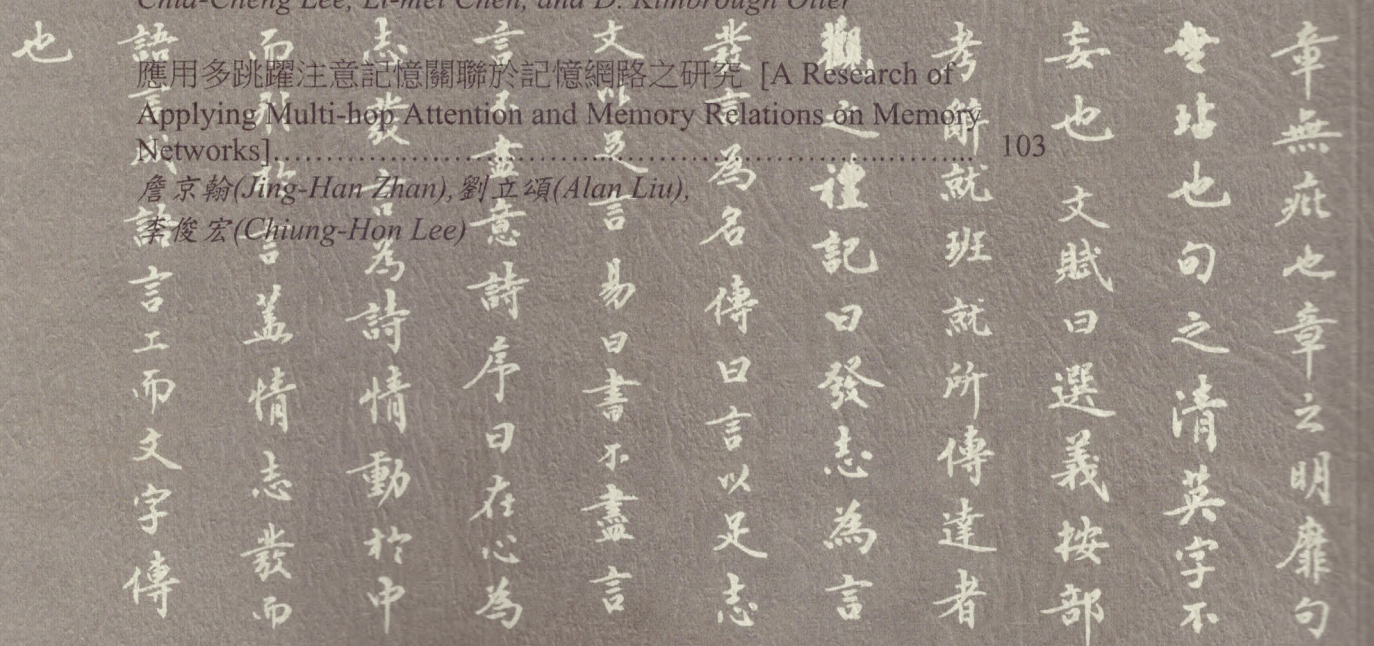 Chia-Cheng Lee, Li-mei Chen, and D. Kimbrough Oller
應用多跳躍注意記憶關聯於記憶網路之研究 [A Research of
Applying Multi-hop Attention and Memory Relations on Memory
Networks]………………………………………………………… 103
詹京翰(Jing-Han Zhan),劉立頌(Alan Liu),
李俊宏(Chiung-Hon Lee)
章無疵也章之明靡句
無玷也句之清英字不
妄也文賦曰選義按部
考辭就班就所傳達者
觀之禮記曰發志為言
發言為名傳曰言以足志
文以足言易曰書不盡言
言不盡意詩序曰在心為
志發言為詩情動於中
而形於言蓋情志發而
語言成語言工而文字傳
也